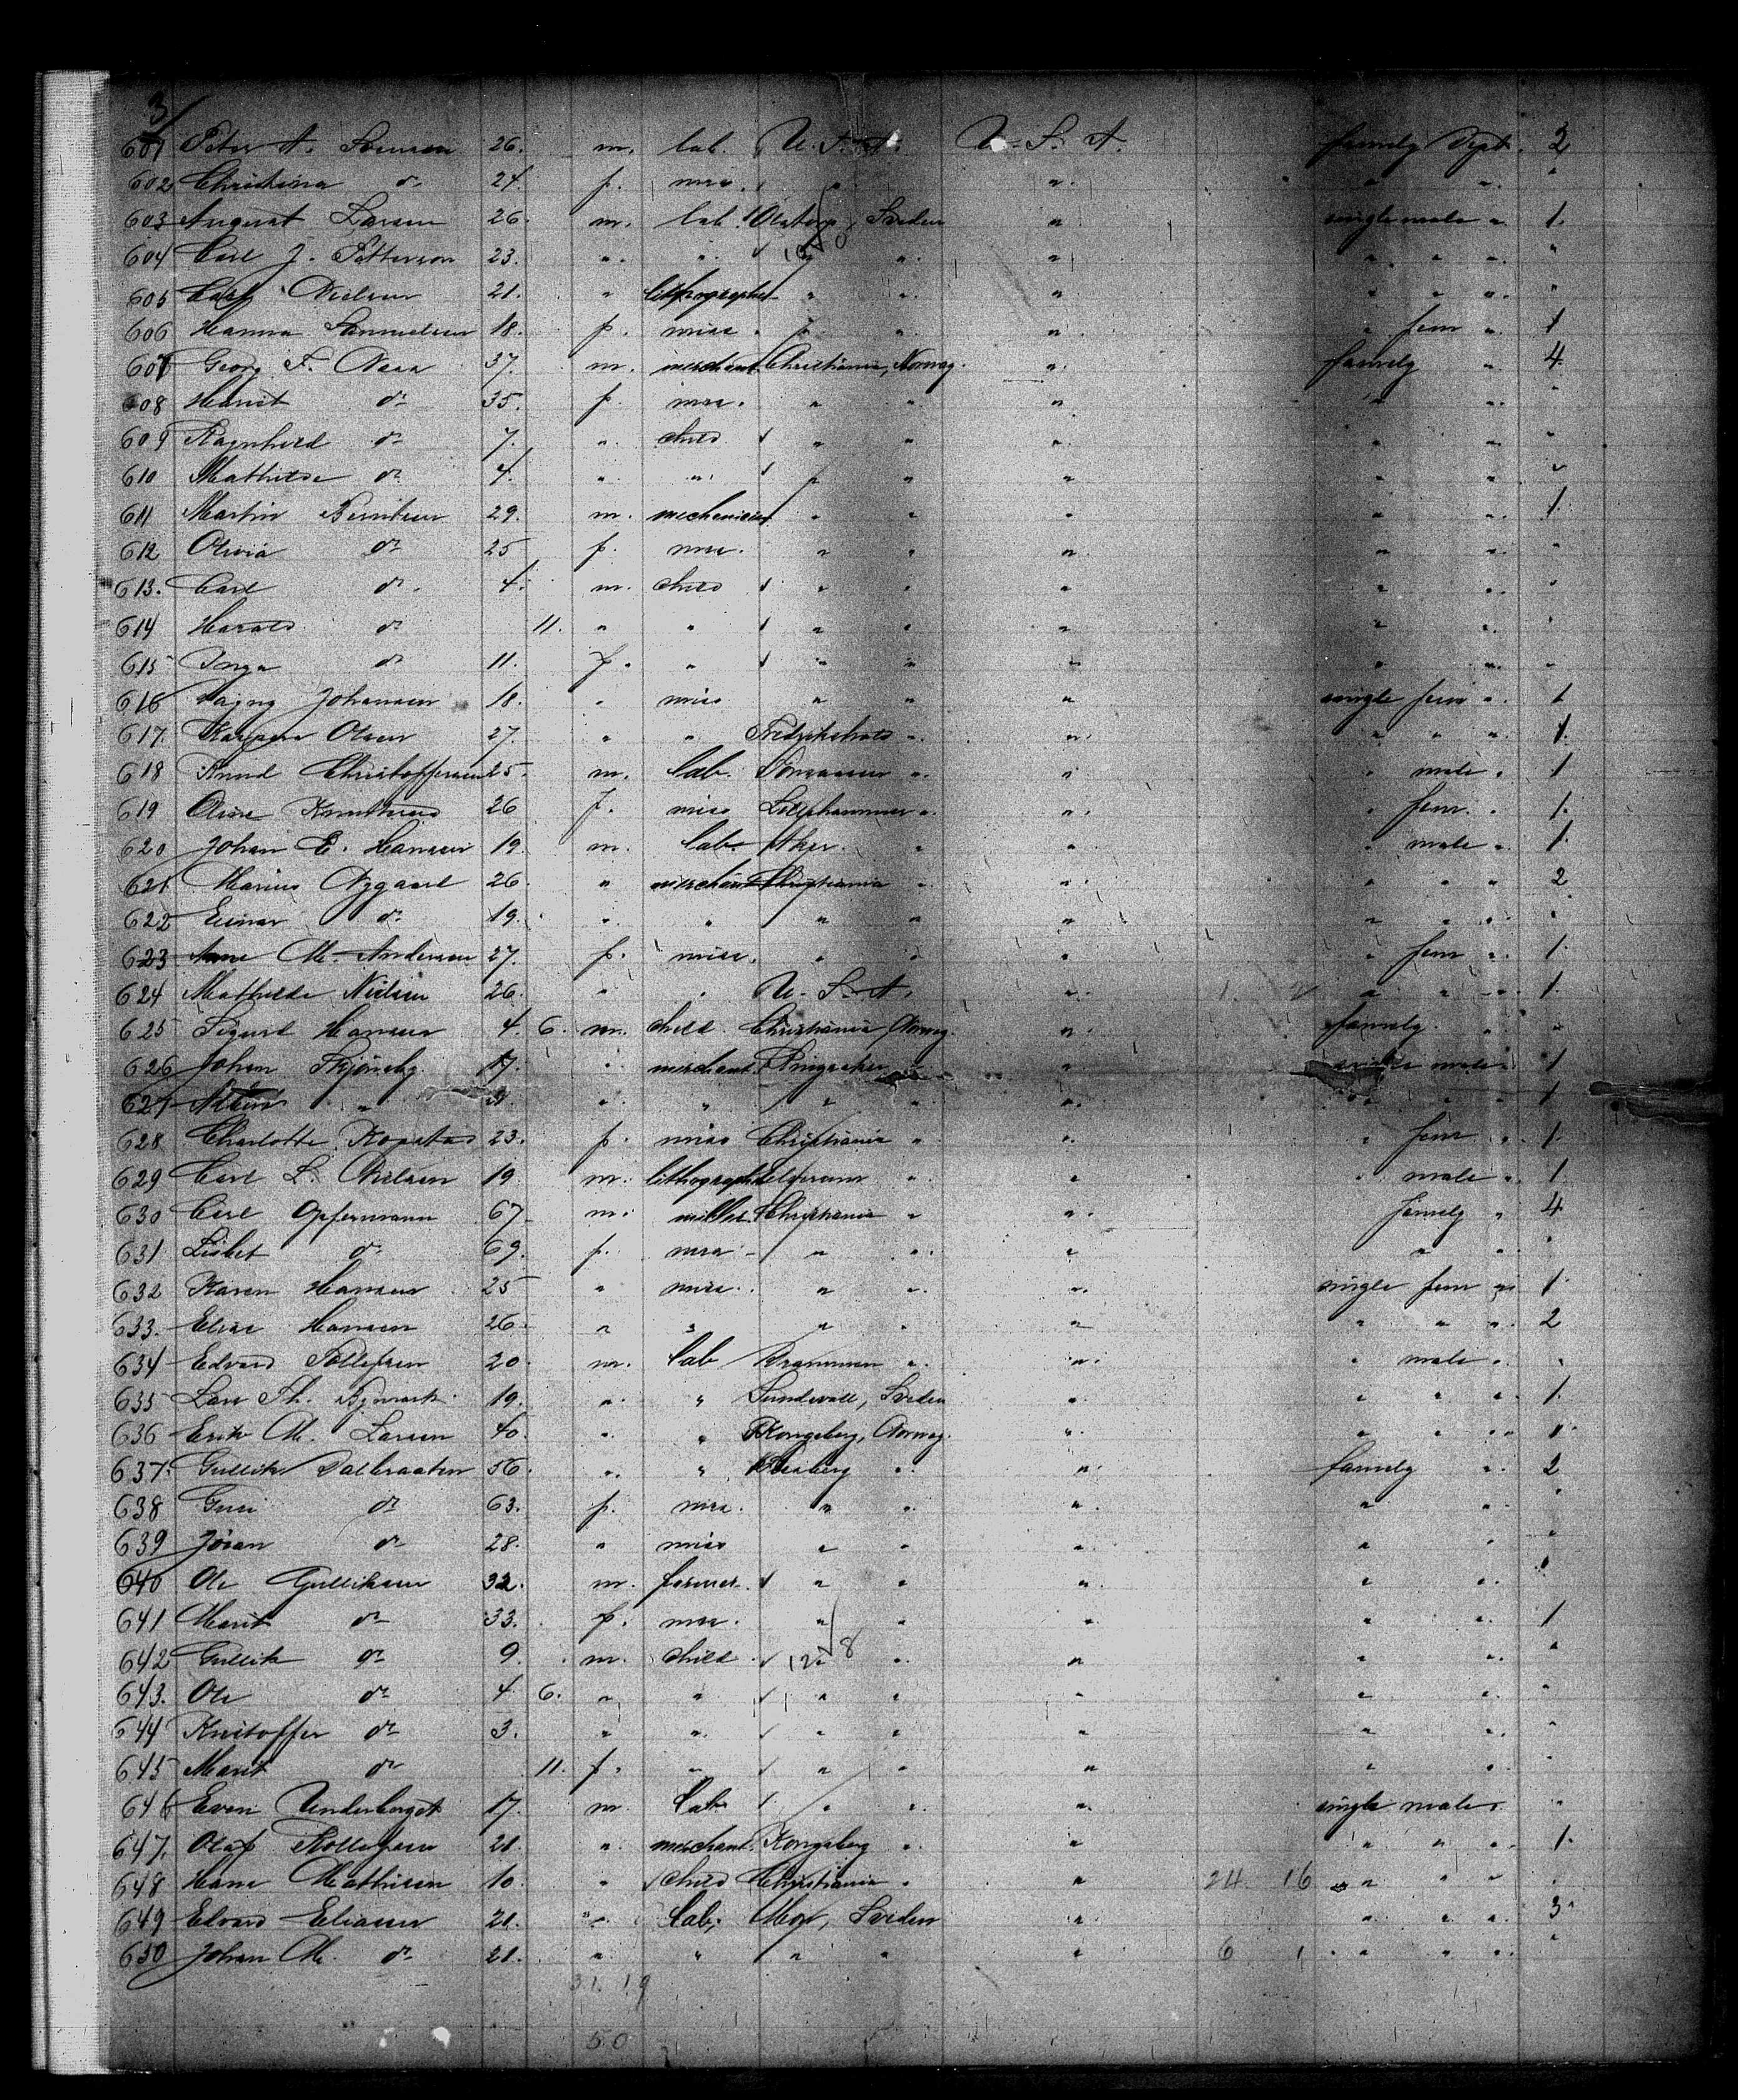 3/
601 Peter A. Svensen 26. m. lab. U. S. A. U. S. A. family Dept. 2
602 Christina do 24. f. mrs. " " " "
603 August Larsen 26. m. lab. Sveden " single male " 1.
604 Carl J. Petterson 23. " " " " " " " " "
605 Carl Nielsen 21. " lithographer " " " " " " "
606 Hanna Samuelsen 18. f. miss " " " " fem " 1
607 Georg F. 37. m. merchant Christiania, Norway. " family " 4
608 Harriet do 35. f. mrs. " " " " " "
609 Ragnhild do 7. " child " " " " " "
610 Mathilde do 4. " " " " " " " "
611 Martin Berntsen 29. m. mechanician " " " " " 1.
612 Olivia do 25 f. mrs. " " " " " "
613. Carl do 4. m. child " " " " " "
614 Harald do 11. " " " " " " " "
615 Inga do 11. f. " " " " " " "
616 Dagny Johansen 18. " miss " " " single fem " 1
617. Olsen 27. " " Fredrikshald " " " " " 1.
618 Knud Christoffersen 25. m. lab. " " " male " 1
619 Oline Knudtsen 26 f. miss Lillehammer " " " fem. " 1.
620 Johan E. Hansen 19. m. lab. Aker. " " " male " 1.
621. Marius Nygaard 26. " merchant Christiania " " " " " 2
622 Einar do 19. " " " " " " " " "
623 Anne M. Andersen 27. f. miss. " " " " fem " 1.
624 Mathilde Nielsen 26. " " U. S. A. " " " " 1.
625 Sigurd Hansen 4. 6. m. child. Christiania, Norway. " family. " "
626 Johan 17. " merchant Ringsaker " " single male " 1
627 " " " " " " " " " 1
628 Charlotte 23. f. miss Christiania " " " fem " 1.
629 Carl L. Nielsen 19. m. lithographer Elverum " " " male " 1
630 Carl Opfermann 67. m. miller Christiania " " family " 4
631 Lisbet do 69. f. mrs " " " " " "
632 Karen Hansen 25 " miss. " " " single fem " 1
633. Elise Hansen 26. " " " " " " " " 2
634 Edvard Tollefsen 20. m. lab Drammen " " " male " "
635 Lars Th. 19. " " Sundsvall, Sveden " " " " 1.
636 Erik M. Larsen 40. " " Kongsberg, Norway. " " " " 1
637. Gullik Dalbraaten 56. " " " " family " 2
638 Guri do 63. f. mrs. " " " " " "
639 Jöran do 28. " miss " " " " " "
640 Ole Gulliksen 32. m. farmer. " " " " " "
641 Marit do 33. f. mrs. " " " " " 1
642 Gullik do 9. m. child " " " " " "
643. Ole do 4 6. " " " " " " " "
644 Kristoffer do 3. " " " " " " " "
645 Marit do 11. f. " " " " " " "
646 Even Underberget 17. m. lab " " " single male " "
647. Olaf Tollefsen 21. " merchant Kongsberg " " " " " 1.
648 Hans Mathisen 10. " child Christiania " " 24 16 " " " "
649 Edvard Eliasen 21. " lab. Sveden " " " " 3
650 Johan M. do 21. " " " " " 6 1 " " " "
31. 19
50